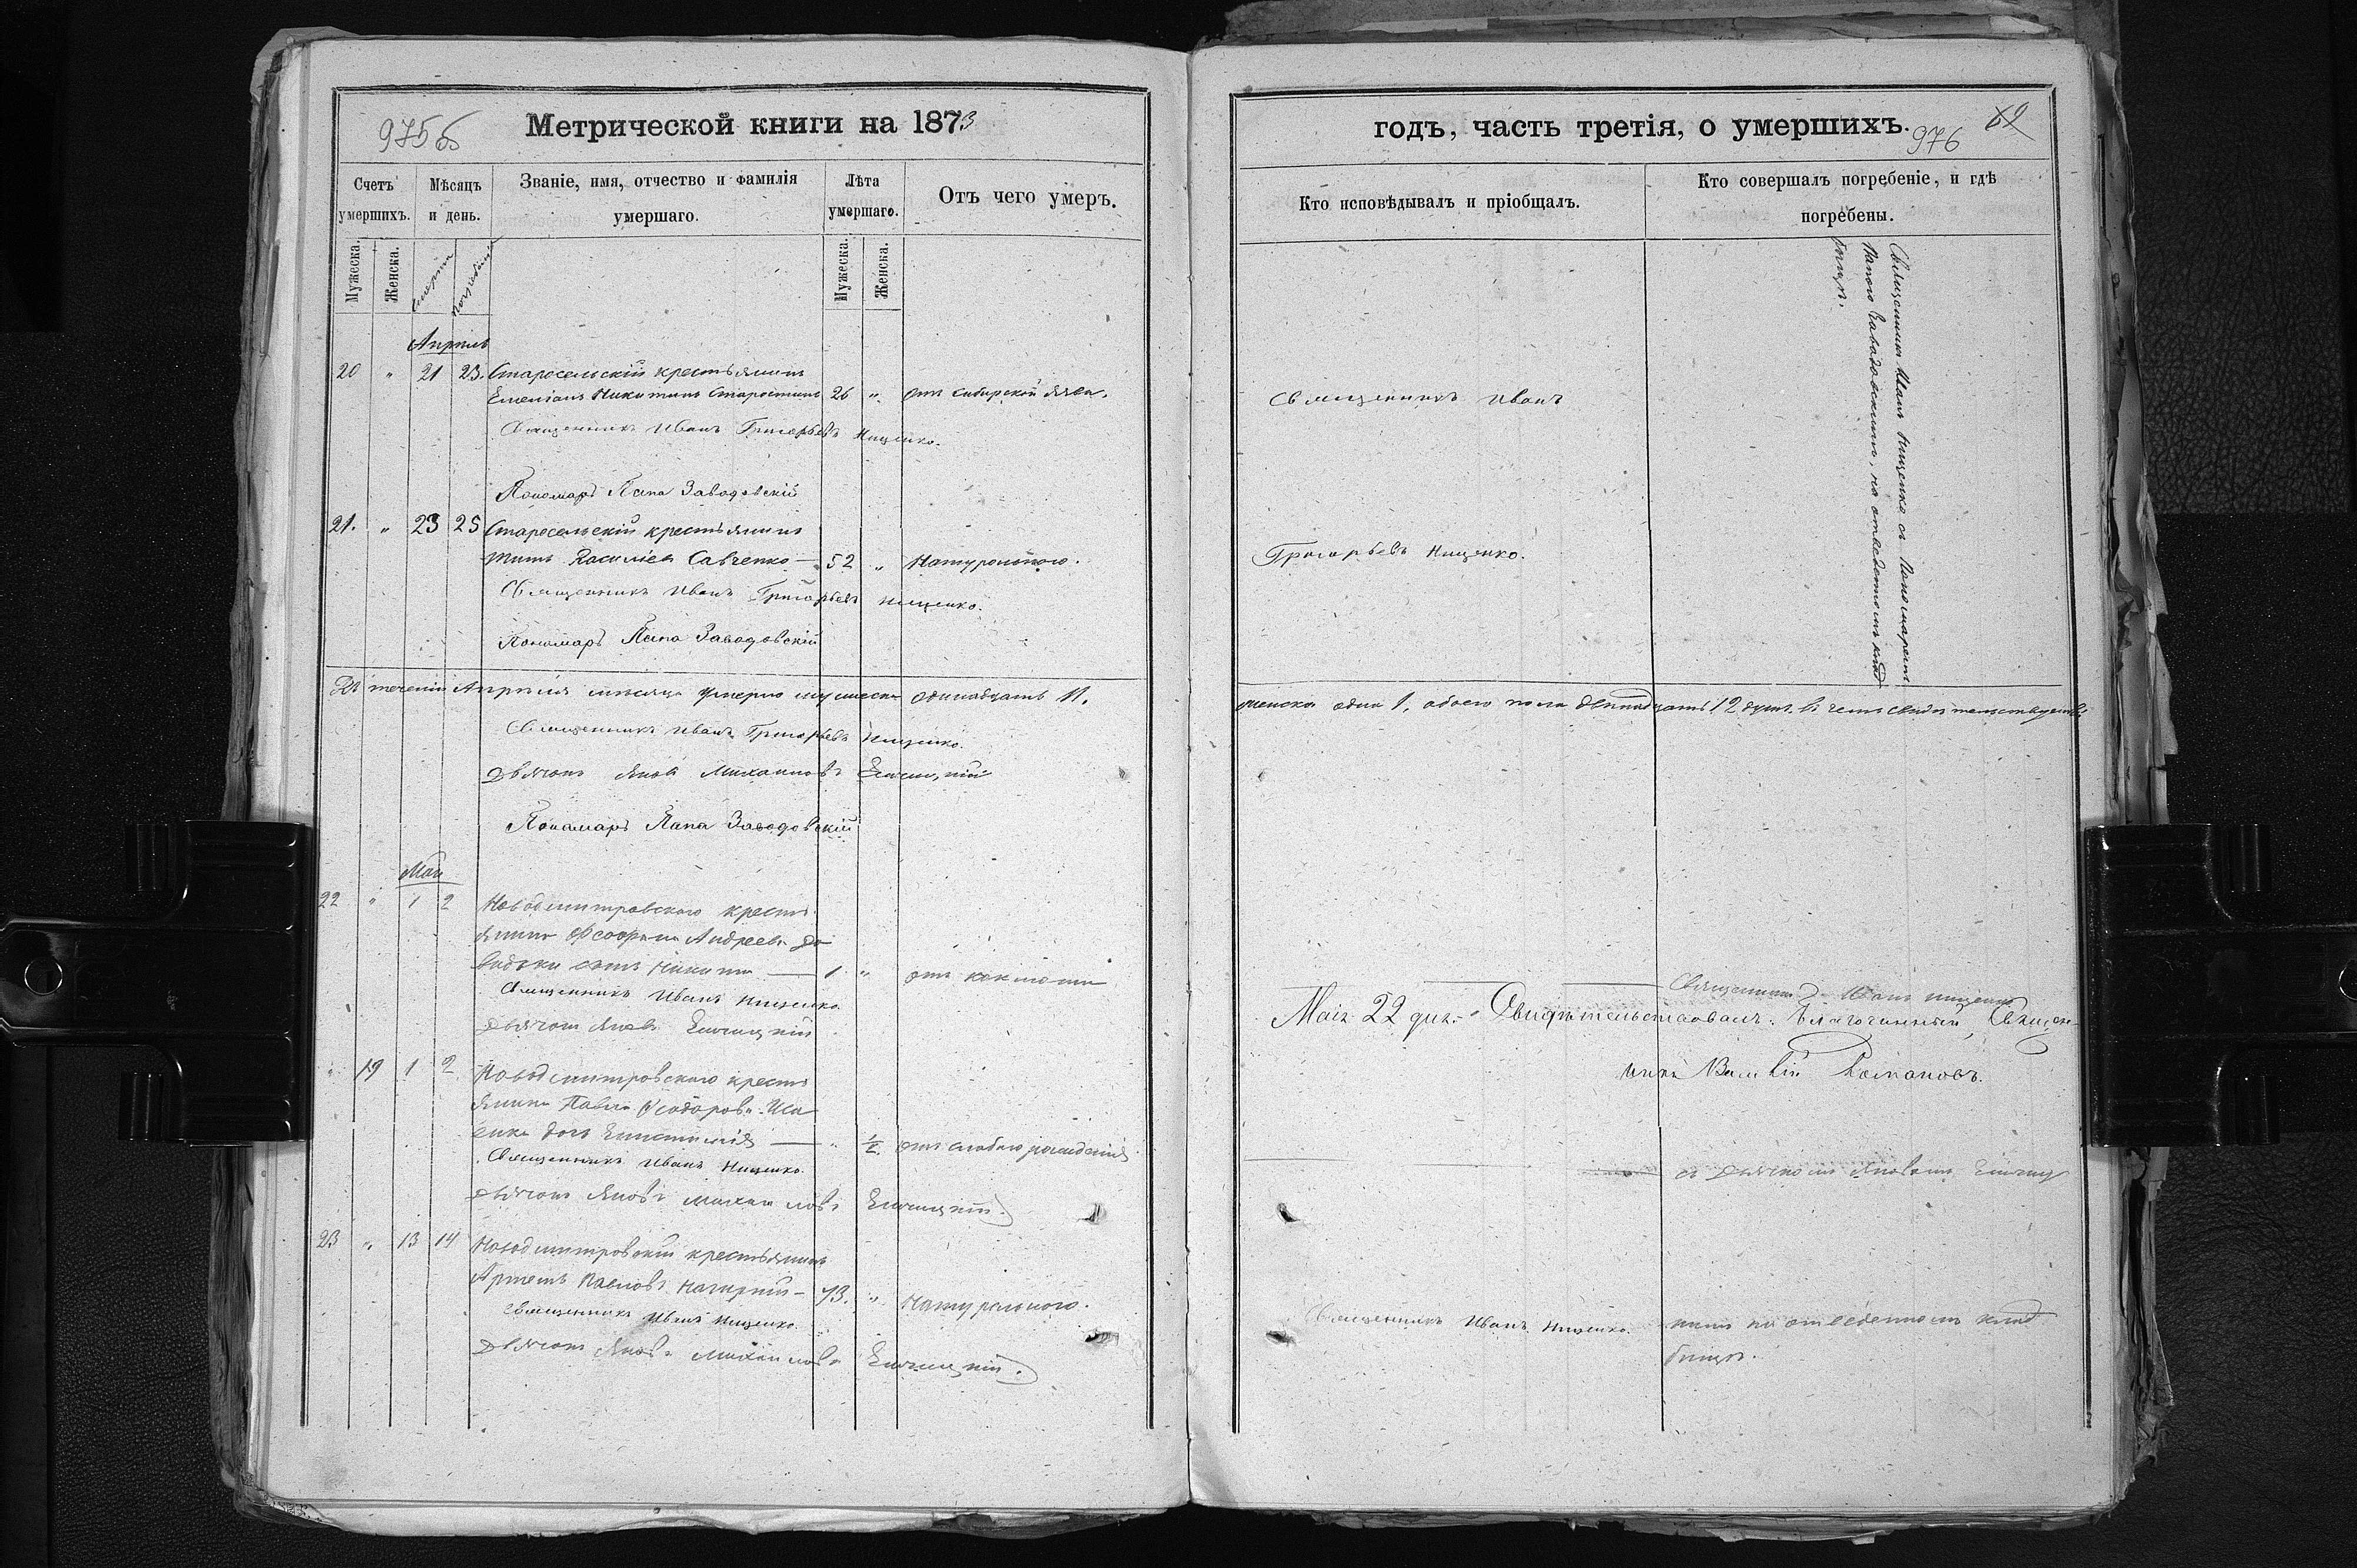 975б
Метрической книги на 1873
Счетъ умершихъ.
Мѣсяцъ и день.
Званіе, имя, отчество и фамилія умершаго.
Лѣта умершаго.
Отъ чего умеръ.
Мужеска.
Женска.
смерти
погребенія
Мужеска.
Женска.
Апрѣль
20 " 21 23. Старосельскій крестьянинъ
Никитинъ Старостинъ 26 " отъ сибирской язвы.
Священникъ Иванъ Григорьевъ Нищенко.
Пономарь Папа Заводовскій
21. " 23 25 Старосельскій крестьянинъ
Титъ Васильевъ Савченко — 52 " Натурального.
Священникъ Иванъ Григорьевъ Нищенко.
Пономарь Папа Заводовскій
Въ теченіи Апрѣля мѣсяца умерло мужеска одинадцать 11.
Священникъ Иванъ Григорьевъ Нищенко.
Дьячокъ Яковъ Михаиловъ
Пономарь Папа Заводовскій
Май
22 " 1 2 Новодмитровского кресть
янина Андреева До
сынъ Никита — 1 " отъ
Священникъ Иванъ Нищенко
Дьячокъ Яковъ
" 19 1 2 Новодмитровского кресть
янина Павла Феодорова Иса
енка дочь — " 1/2 отъ слабаго рожденія
Священникъ Иванъ Нищенко.
Дьячокъ Яковъ Михаиловъ
23 " 13 14 Новодмитровскій крестьянинъ
Артемъ Павловъ — 73. " Натурального.
Священникъ Иванъ Нищенко.
Дьячокъ Яковъ Михаиловъ
годъ, часть третія, о умершихъ.
976
62
Кто исповѣдывалъ и пріобщалъ.
Кто совершалъ погребеніе, и гдѣ погребены.
Священникъ Иванъ
Григорьевъ Нищенко.
Священникъ Иванъ Нищенко съ Пономаремъ
Папою Заводовскимъ, на отведетомъ клад
бищѣ.
женска одна 1, обоего пола двѣнадцать 12 душъ. въ чемъ свидѣтельствуемъ
Священникъ Иванъ Нищенко
Маія 22 дня. Свидѣтельствовалъ: Благочинный, Священ-
никъ Романовъ.
съ Дьячкомъ Яковомъ
Священникъ Иванъ Нищенко.
кимъ на отведенномъ клад
бищѣ.